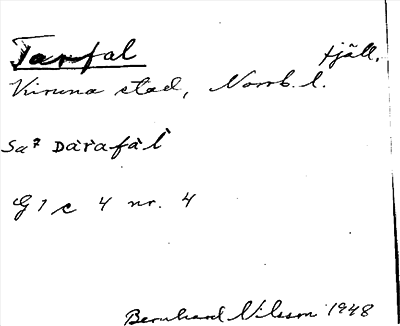 Tarfal fjäll.
Kiruna stad, Norrb. l.
Sa? Dàràfàl
G 1 c 4 nr. 4
Bernhard Nilsson 1948